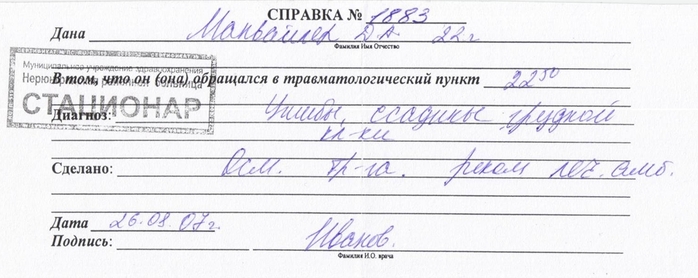 СПРАВКА № 1883
Дана Манвайлер Д.А. 22г
Фамилия Имя Отчество
Муниципальное учреждение здравоохранения
В том, что он (она) обращался в травматологический пункт 22 50
Нерюнгринская районная больница
СТАЦИОНАР
Диагноз: Ушибы, ссадины грудной
кл-ки
Сделано: Осм. тр-га. реком леч. амб.
Дата 26.08.07г.
Подпись: Иванов.
Фамилия И.О. врача